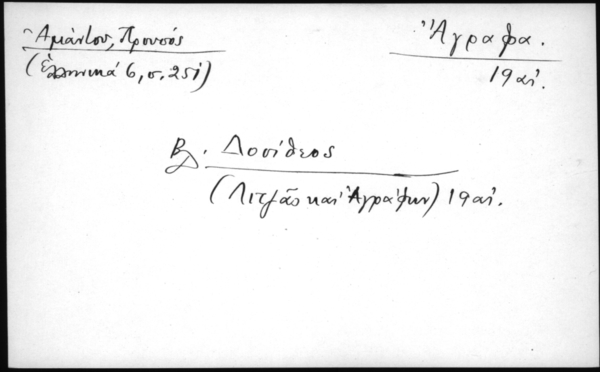 Ἀμάντου, Προυσός
(Ἑλληνικά 6, σ. 251)
Ἄγραφα.
19 αἰ.
Βλ. Δοσίθεος
(Λιτζᾶς καὶ Ἀγράφων) 19 αἰ.